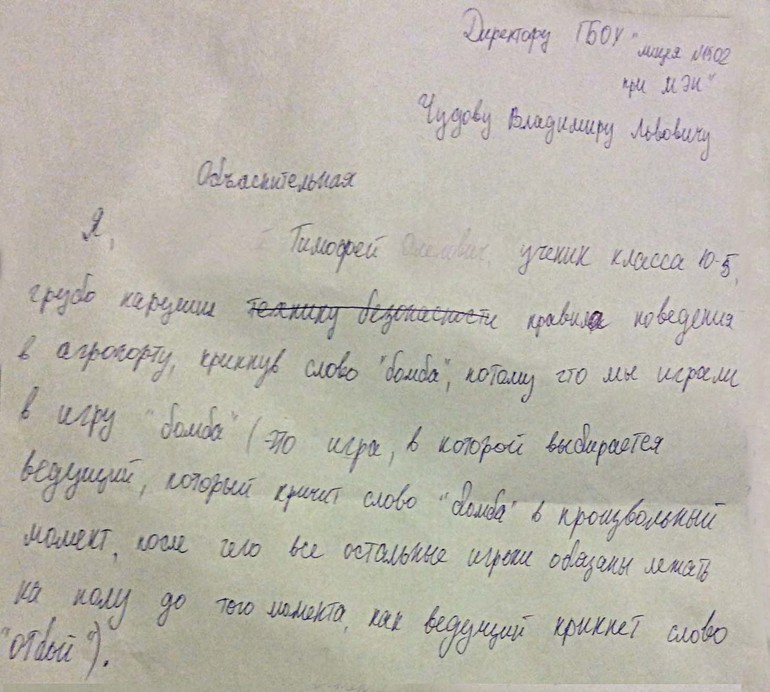 Директору ГБОУ "лицея №1502
при МЭИ"
Чудову Владимиру Львовичу
Объяснительная
Я,
Тимофей Олегович, ученик класса 10-5,
грубо нарушил технику безопасности правила поведения
в аэропорту, крикнув слово "бомба", потому что мы играли
в игру "бомба" (это игра, в которой выбирается
ведущий, который кричит слово "бомба" в произвольный
момент, после чего все остальные игроки обязаны лежать
на полу до того момента, как ведущий крикнет слово
"отбой").